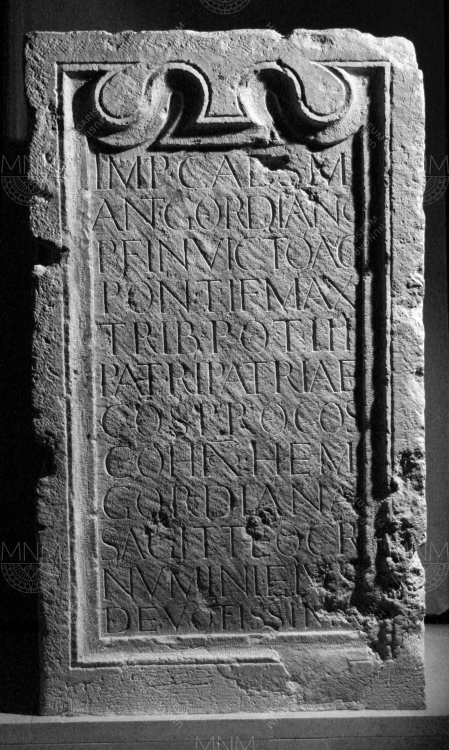 IMP CAES M
ANT GORDIANO
P F INVICTO AG
PONTIF MAX
TRIB POT III
PATRI PATRIAE
COS PROCOS
COH N HEM
GORDIAN
SAGITT EQ CR
NVMINI EI
DEVOTISSIM
MNM
MNM
MNM
MNM
MNM
MNM